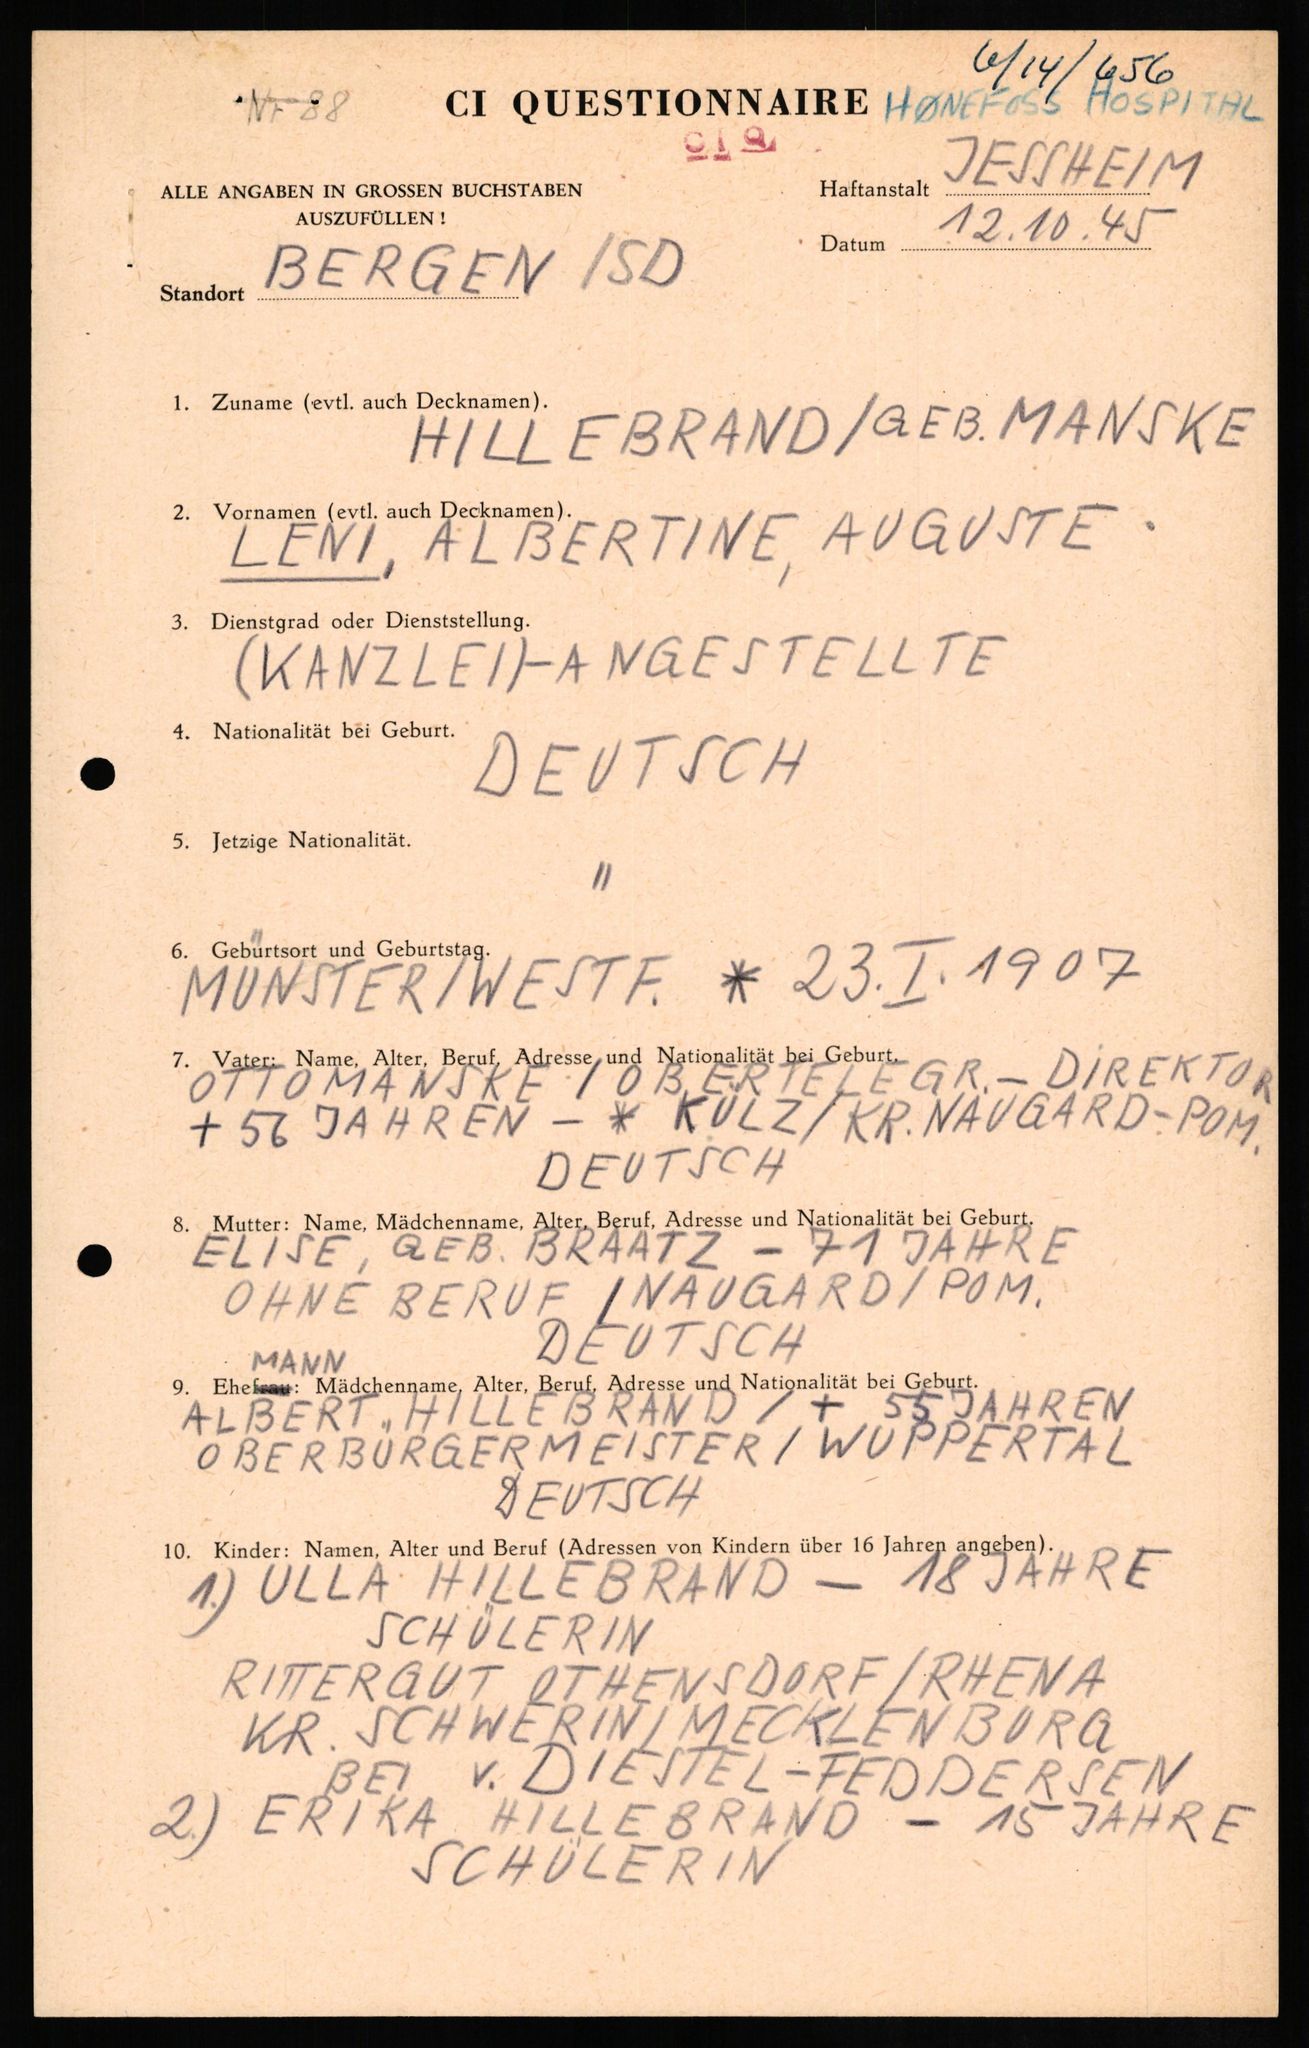 6/14/656
Nr 88
CI QUESTIONNAIRE
HØNEFOSS HOSPITAL
CIQ
ALLE ANGABEN IN GROSSEN BUCHSTABEN
AUSZUFÜLLEN!
Haftanstalt JESSHEIM
Datum 12.10.45
Standort BERGEN /SD
1. Zuname (evtl. auch Decknamen).
HILLEBRAND/GEB. MANSKE
2. Vornamen (evtl. auch Decknamen).
LENI, ALBERTINE, AUGUSTE.
3. Dienstgrad oder Dienststellung.
(KANZLEI)-ANGESTELLTE
4. Nationalität bei Geburt.
DEUTSCH
5. Jetzige Nationalität.
"
6. Geburtsort und Geburtstag.
MÜNSTER/WESTF. * 23.I.1907
7. Vater: Name, Alter, Beruf, Adresse und Nationalität bei Geburt.
OTTO MANSKE / OBERTELEGR.-DIREKTOR
+ 56 JAHREN - * KÜLZ/KR. NAUGARD-POM.
DEUTSCH
8. Mutter: Name, Mädchenname, Alter, Beruf, Adresse und Nationalität bei Geburt.
ELISE, GEB. BRAATZ - 71 JAHRE
OHNE BERUF / NAUGARD/POM.
DEUTSCH
MANN
9. Ehefrau: Mädchenname, Alter, Beruf, Adresse und Nationalität bei Geburt.
ALBERT HILLEBRAND / + 55 JAHREN
OBERBÜRGERMEISTER/WUPPERTAL
DEUTSCH
10. Kinder: Namen, Alter und Beruf (Adressen von Kindern über 16 Jahren angeben).
1.) ULLA HILLEBRAND - 18 JAHRE
SCHÜLERIN
RITTERGUT OTHENSDORF/RHENA
KR. SCHWERIN/MECKLENBURG
BEI v. DIESTEL-FEDDERSEN
2.) ERIKA HILLEBRAND - 15 JAHRE
SCHÜLERIN